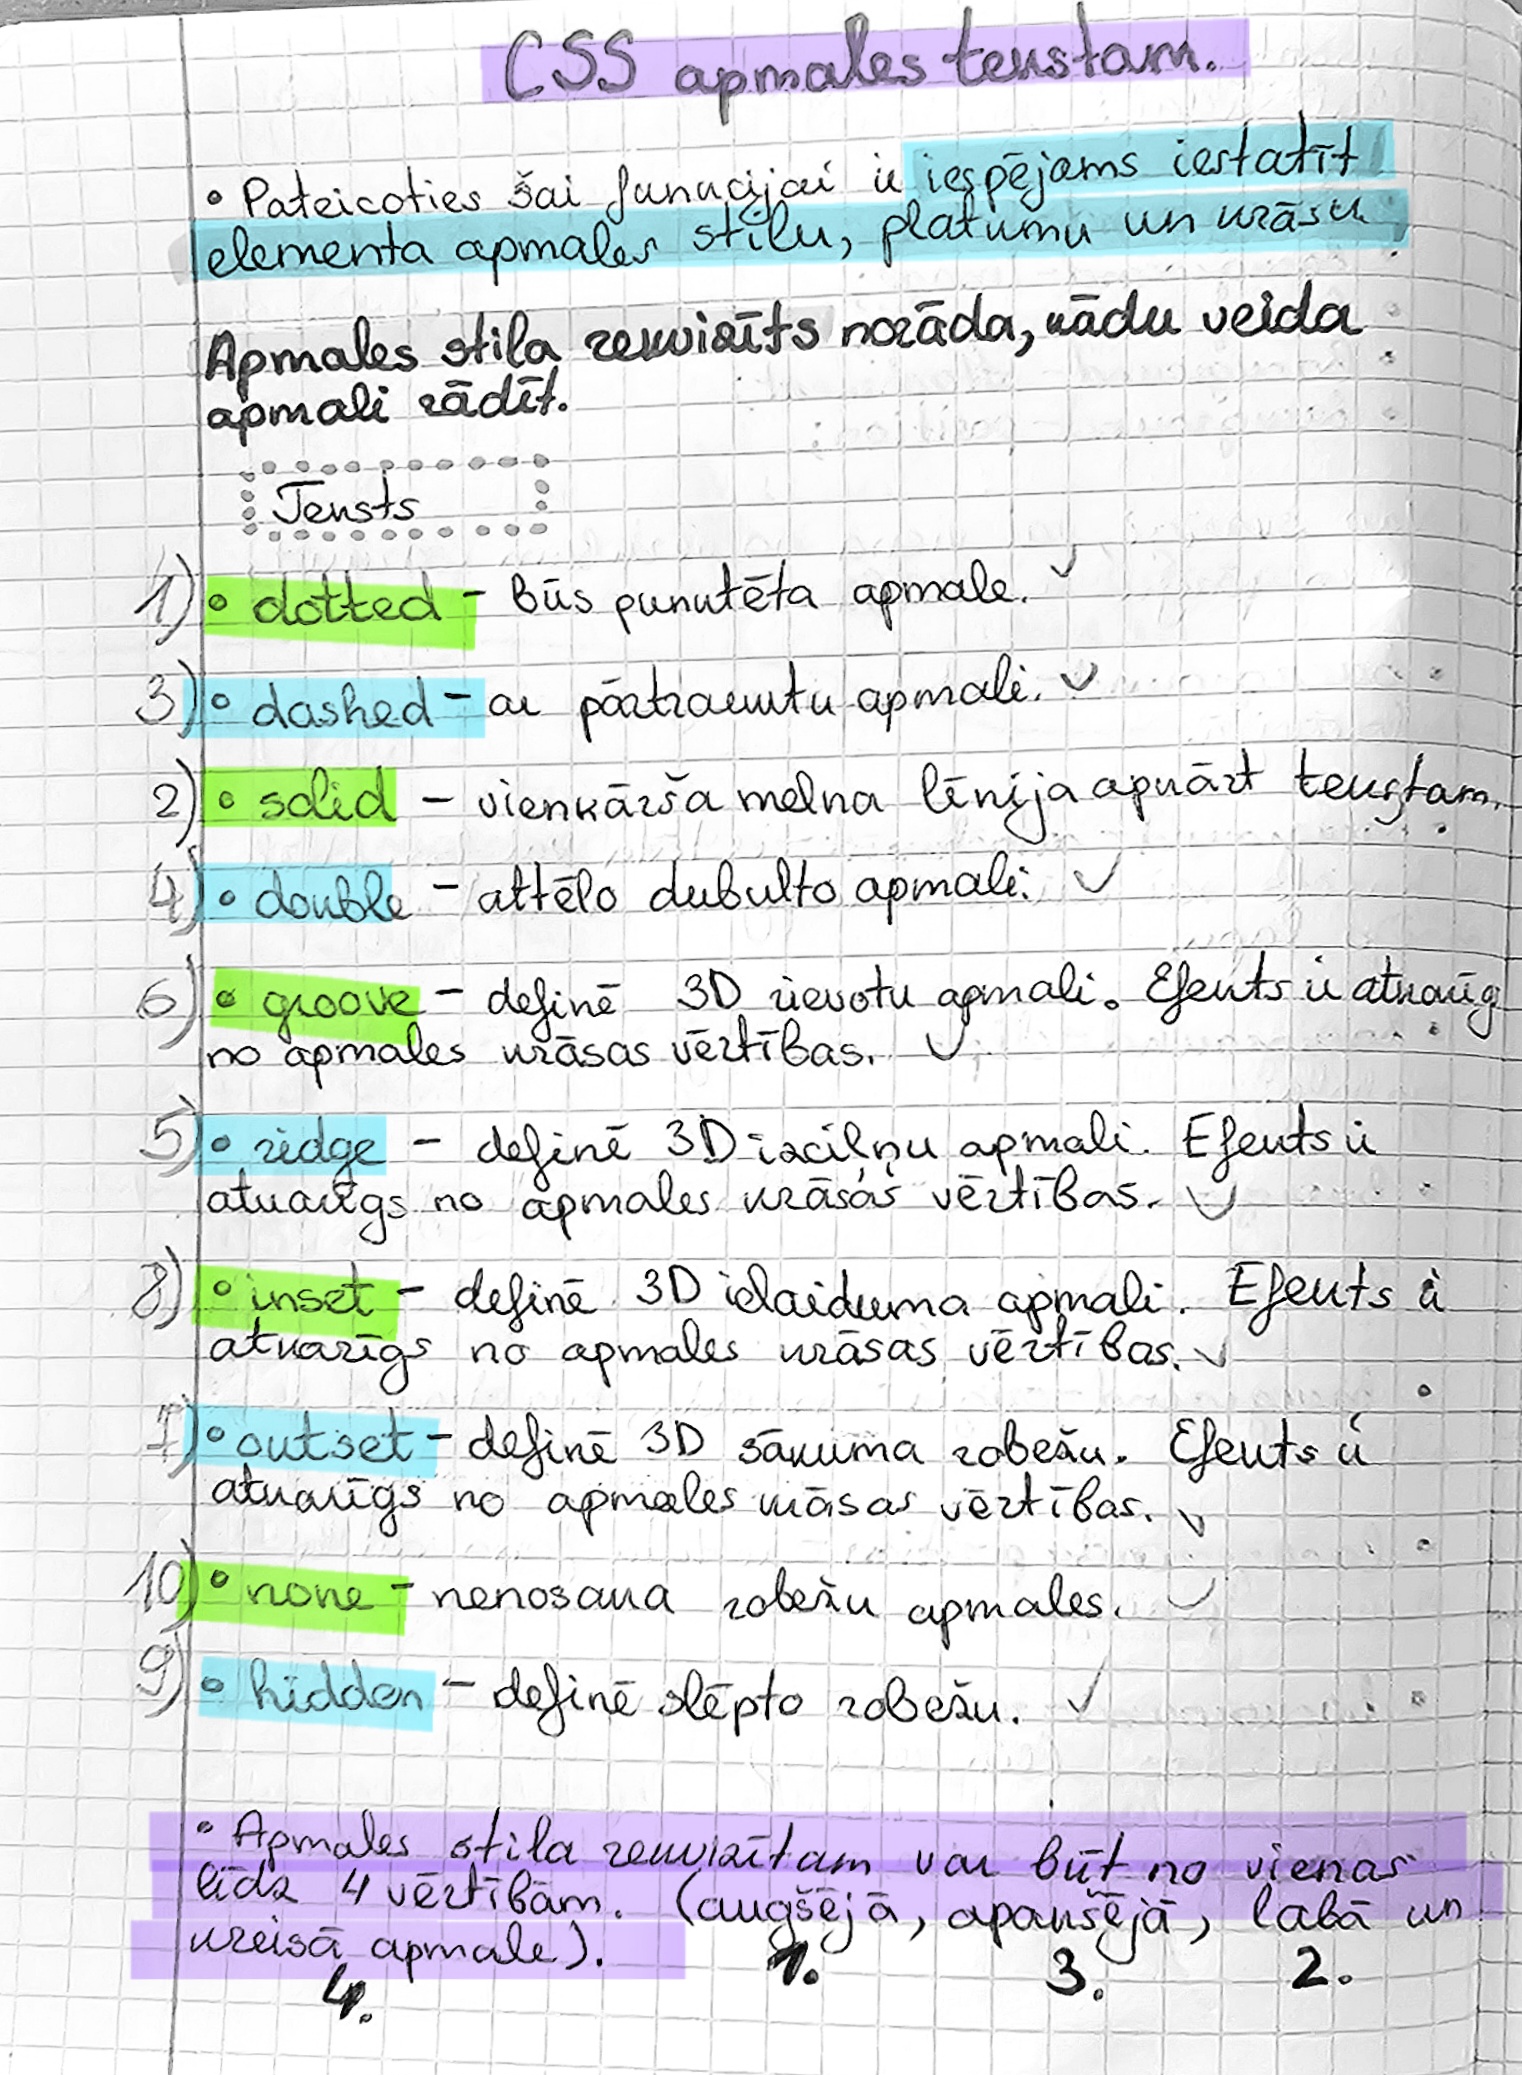 CSS apmales tekstam.
• Pateicoties šai funkcijai ir iespējams iestatīt
elementa apmales stilu, platumu un krāsu.
Apmales stila rekvizīts norāda, kādu veida
apmali rādīt.
Teksts
1) • dotted - būs punktēta apmale. ✓
3) • dashed - ar pārtrauktu apmali. ✓
2) • solid - vienkārša melna līnija apkārt tekstam.
4) • double - attēlo dubulto apmali. ✓
6) • groove - definē 3D rievotu apmali. Efekts ir atkarīgs
no apmales krāsas vērtības. ✓
5) • ridge - definē 3D izciļņu apmali. Efekts ir
atkarīgs no apmales krāsas vērtības. ✓
8) • inset - definē 3D ielaiduma apmali. Efekts ir
atkarīgs no apmales krāsas vērtības. ✓
7) • outset - definē 3D sākuma robežu. Efekts ir
atkarīgs no apmales krāsas vērtības. ✓
10) • none - nenosaka robežu apmales. ✓
9) • hidden - definē slēpto robežu. ✓
• Apmales stila rekvizītam var būt no vienas
līdz 4 vērtībām. (augšējā, apakšējā, labā un
kreisā apmale).
4. 1. 3. 2.